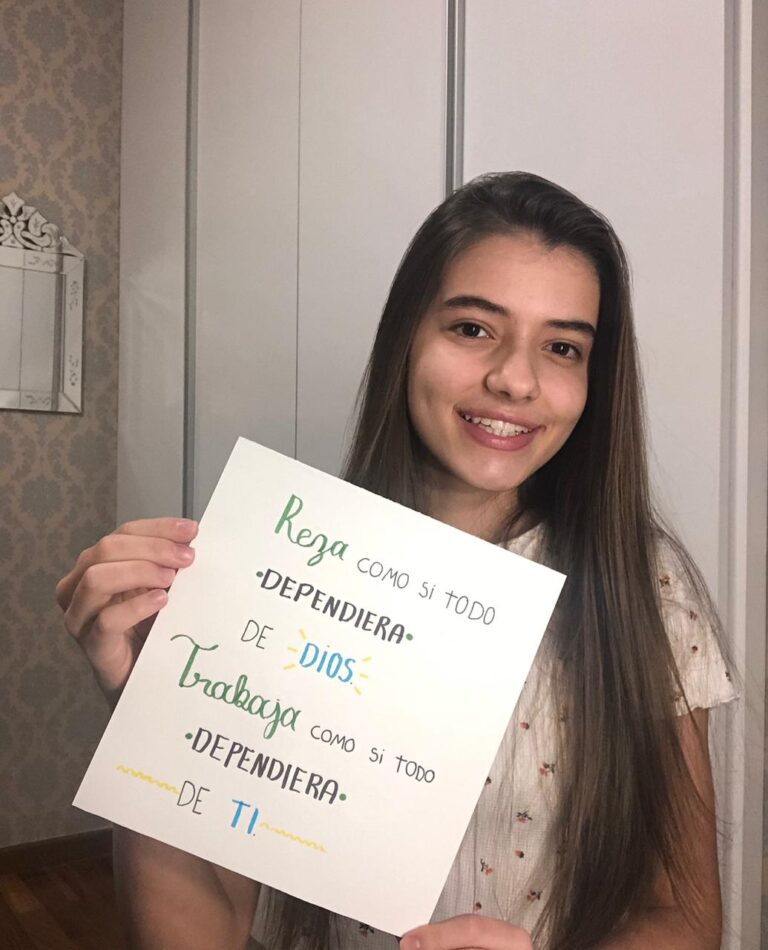 Reza COMO SI TODO
•DEPENDIERA•
DE DIOS.
Trabaja COMO SI TODO
•DEPENDIERA•
DE TI.